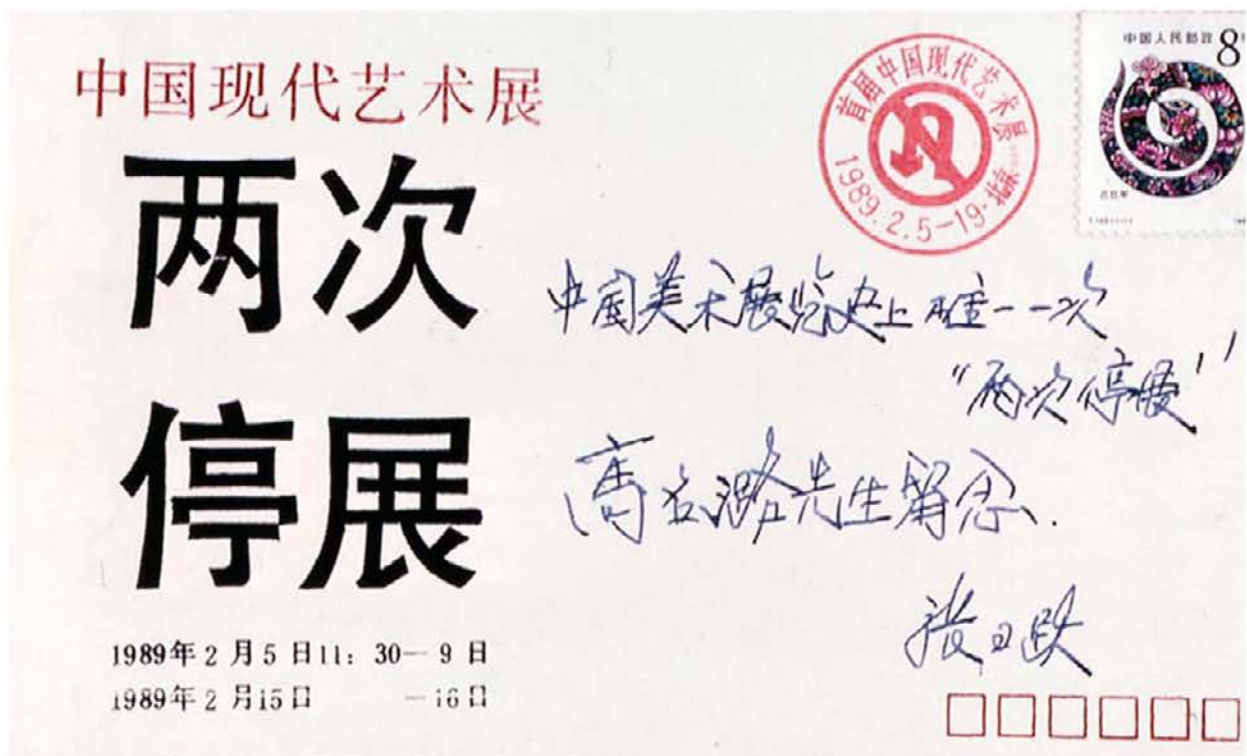 中国现代艺术展
两次
停展
1989年2月5日11：30—9日
1989年2月15日　　—16日
首届中国现代艺术展
1989.2.5-19·北京
中国人民邮政 8
己巳年
中国美术展览史上唯一一次
“两次停展”
高名潞先生留念.
张日跃